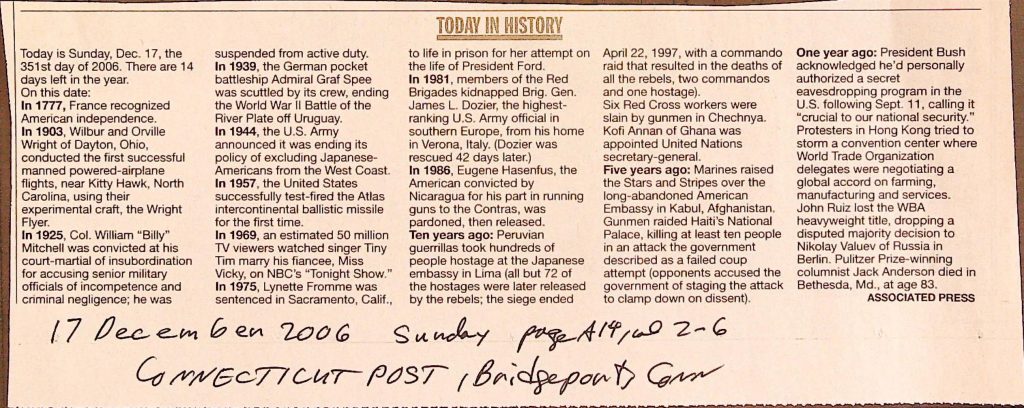 TODAY IN HISTORY
Today is Sunday, Dec. 17, the
351st day of 2006. There are 14
days left in the year.
On this date:
In 1777, France recognized
American independence.
In 1903, Wilbur and Orville
Wright of Dayton, Ohio,
conducted the first successful
manned powered-airplane
flights, near Kitty Hawk, North
Carolina, using their
experimental craft, the Wright
Flyer.
In 1925, Col. William “Billy”
Mitchell was convicted at his
court-martial of insubordination
for accusing senior military
officials of incompetence and
criminal negligence; he was
suspended from active duty.
In 1939, the German pocket
battleship Admiral Graf Spee
was scuttled by its crew, ending
the World War II Battle of the
River Plate off Uruguay.
In 1944, the U.S. Army
announced it was ending its
policy of excluding Japanese-
Americans from the West Coast.
In 1957, the United States
successfully test-fired the Atlas
intercontinental ballistic missile
for the first time.
In 1969, an estimated 50 million
TV viewers watched singer Tiny
Tim marry his fiancee, Miss
Vicky, on NBC's “Tonight Show.”
In 1975, Lynette Fromme was
sentenced in Sacramento, Calif.,
to life in prison for her attempt on
the life of President Ford.
In 1981, members of the Red
Brigades kidnapped Brig. Gen.
James L. Dozier, the highest-
ranking U.S. Army official in
southern Europe, from his home
in Verona, Italy. (Dozier was
rescued 42 days later.)
In 1986, Eugene Hasenfus, the
American convicted by
Nicaragua for his part in running
guns to the Contras, was
pardoned, then released.
Ten years ago: Peruvian
guerrillas took hundreds of
people hostage at the Japanese
embassy in Lima (all but 72 of
the hostages were later released
by the rebels; the siege ended
April 22, 1997, with a commando
raid that resulted in the deaths of
all the rebels, two commandos
and one hostage).
Six Red Cross workers were
slain by gunmen in Chechnya.
Kofi Annan of Ghana was
appointed United Nations
secretary-general.
Five years ago: Marines raised
the Stars and Stripes over the
long-abandoned American
Embassy in Kabul, Afghanistan.
Gunmen raided Haiti's National
Palace, killing at least ten people
in an attack the government
described as a failed coup
attempt (opponents accused the
government of staging the attack
to clamp down on dissent).
One year ago: President Bush
acknowledged he'd personally
authorized a secret
eavesdropping program in the
U.S. following Sept. 11, calling it
“crucial to our national security.”
Protesters in Hong Kong tried to
storm a convention center where
World Trade Organization
delegates were negotiating a
global accord on farming,
manufacturing and services.
John Ruiz lost the WBA
heavyweight title, dropping a
disputed majority decision to
Nikolay Valuev of Russia in
Berlin. Pulitzer Prize-winning
columnist Jack Anderson died in
Bethesda, Md., at age 83.
ASSOCIATED PRESS
17 December 2006 Sunday page A14, col 2-6
CONNECTICUT POST, Bridgeport, Conn